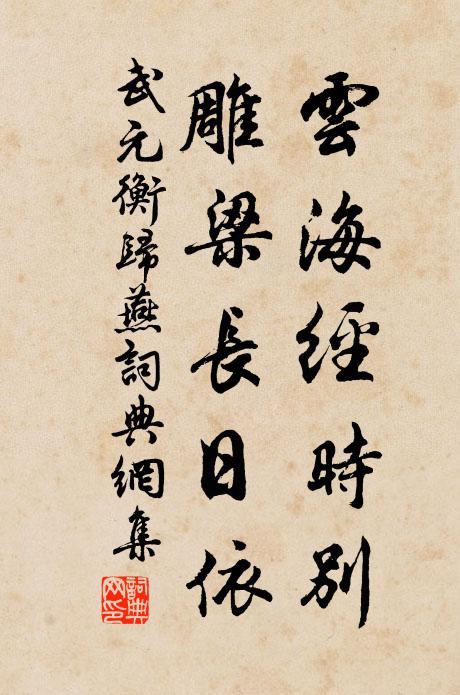 雲海經時別
雕梁長日依
武元衡歸燕詞典網集
詞典網印